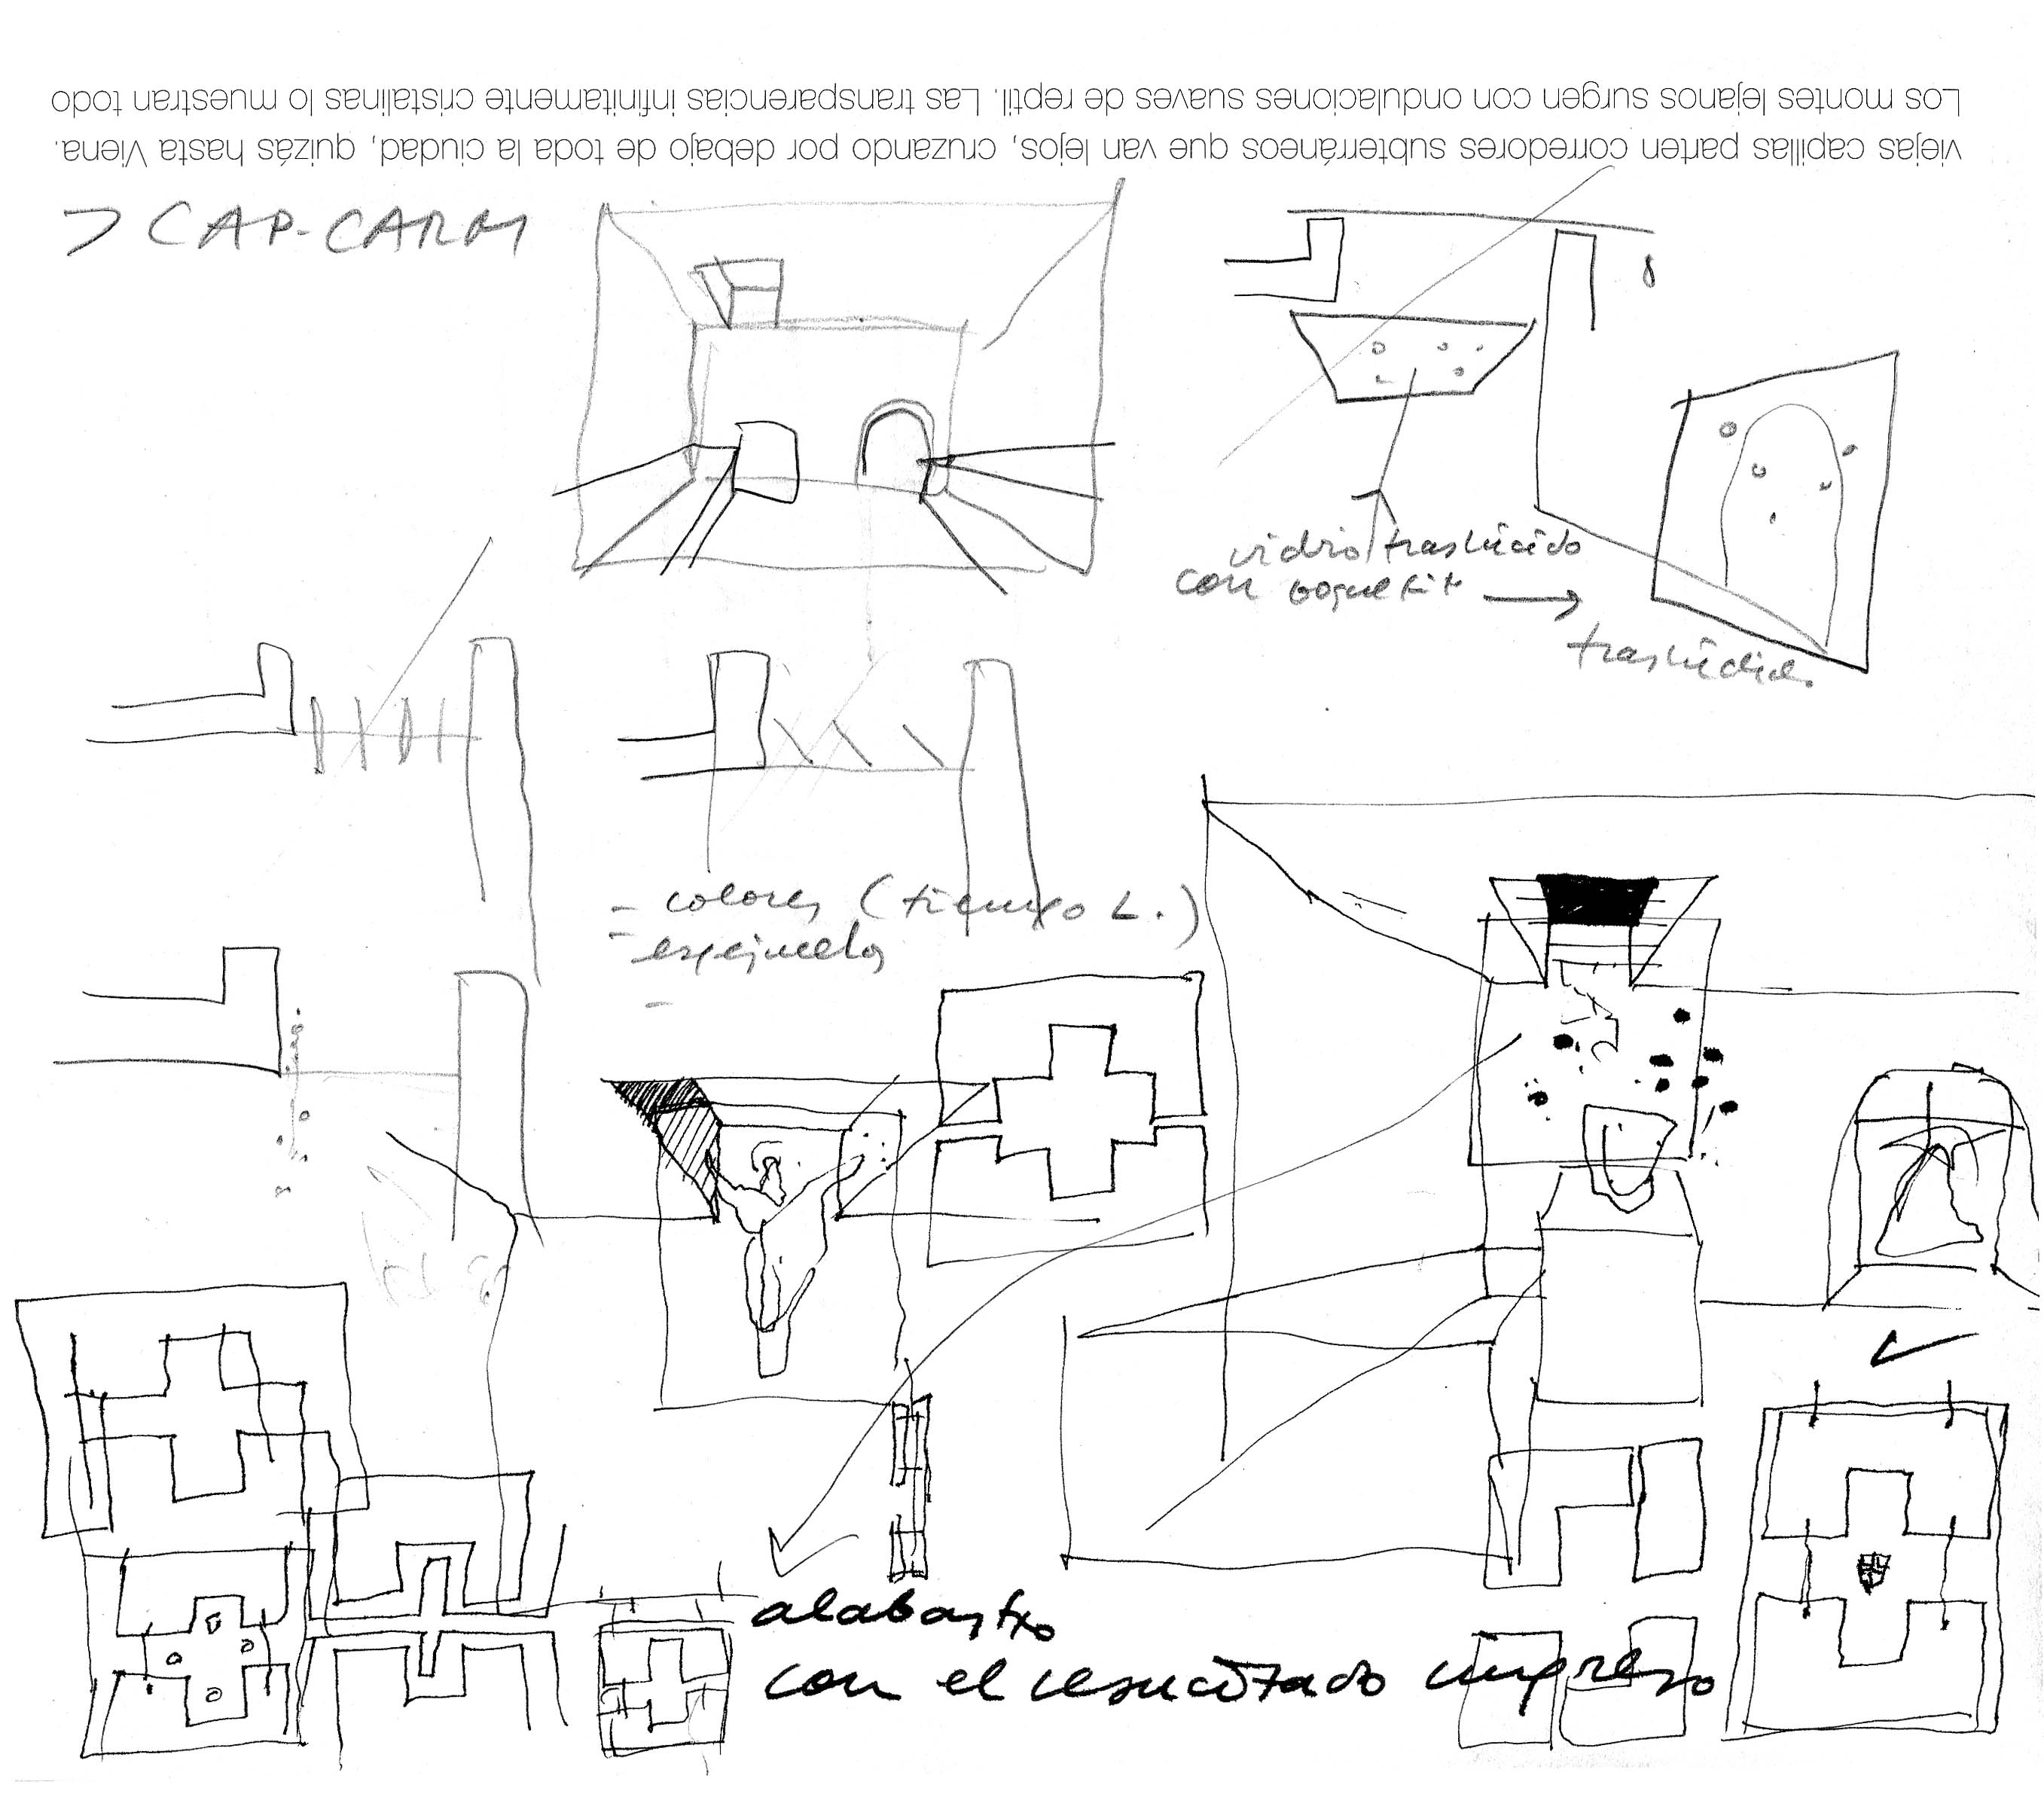 viejas capillas parten corredores subterráneos que van lejos, cruzando por debajo de toda la ciudad, quizás hasta Viena.
Los montes lejanos surgen con ondulaciones suaves de reptil. Las transparencias infinitamente cristalinas lo muestran todo
> CAP-CARM
vidrio traslúcido
con
- colores (tiempo L.)
- espejuelos
alabastro
con el resucitado impreso